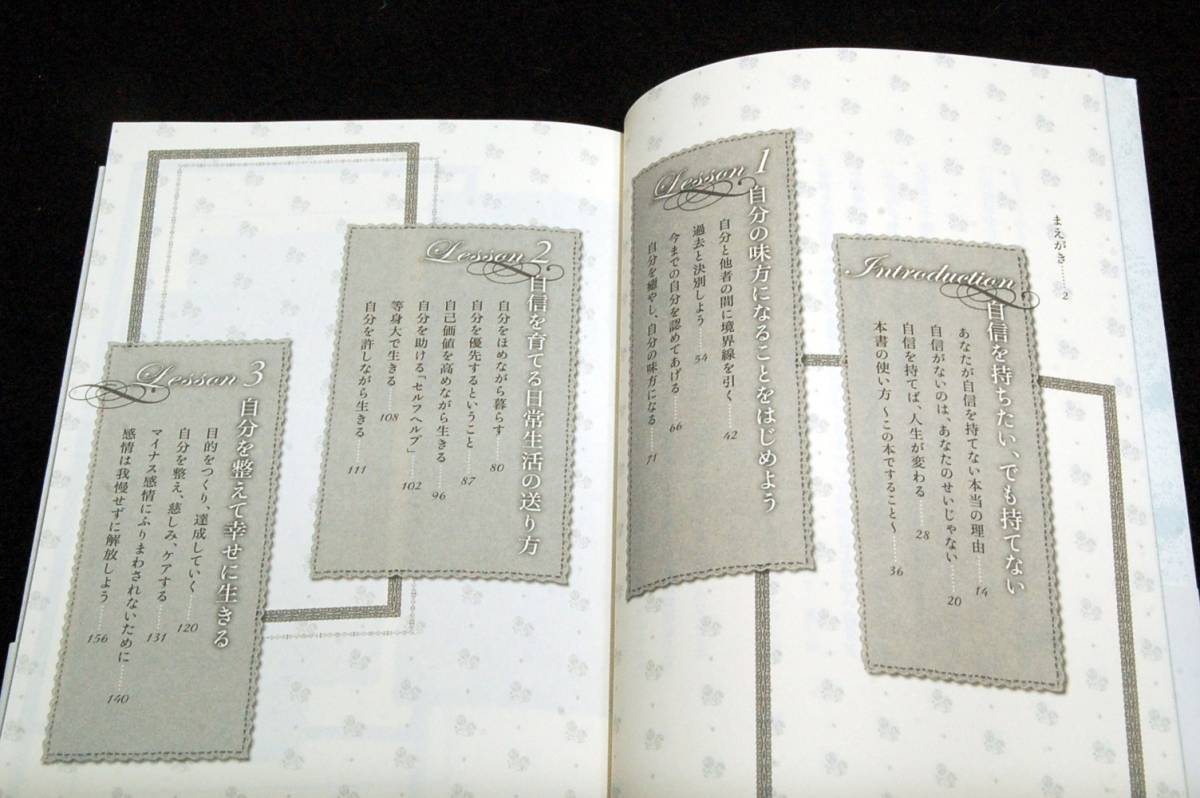 まえがき……2
Introduction
自信を持ちたい、でも持てない
あなたが自信を持てない本当の理由……14
自信がないのは、あなたのせいじゃない……20
自信を持てば、人生が変わる……28
本書の使い方 〜この本ですること〜……36
Lesson 1
自分の味方になることをはじめよう
自分と他者の間に境界線を引く……42
過去と決別しよう……54
今までの自分を認めてあげる……66
自分を癒やし、自分の味方になる……71
Lesson 2
自信を育てる日常生活の送り方
自分をほめながら暮らす……80
自分を優先するということ……87
自己価値を高めながら生きる……96
自分を助ける「セルフヘルプ」……102
等身大で生きる……108
自分を許しながら生きる……111
Lesson 3
自分を整えて幸せに生きる
目的をつくり、達成していく……120
自分を整え、慈しみ、ケアする……131
マイナス感情にふりまわされないために……140
感情は我慢せずに解放しよう……156